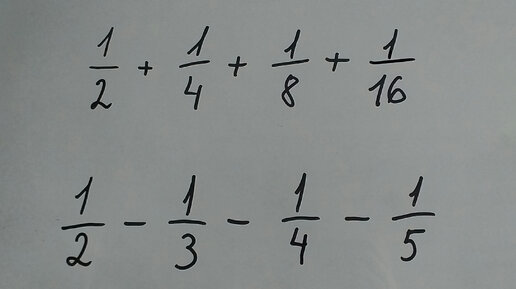 1/2 + 1/4 + 1/8 + 1/16
1/2 - 1/3 - 1/4 - 1/5